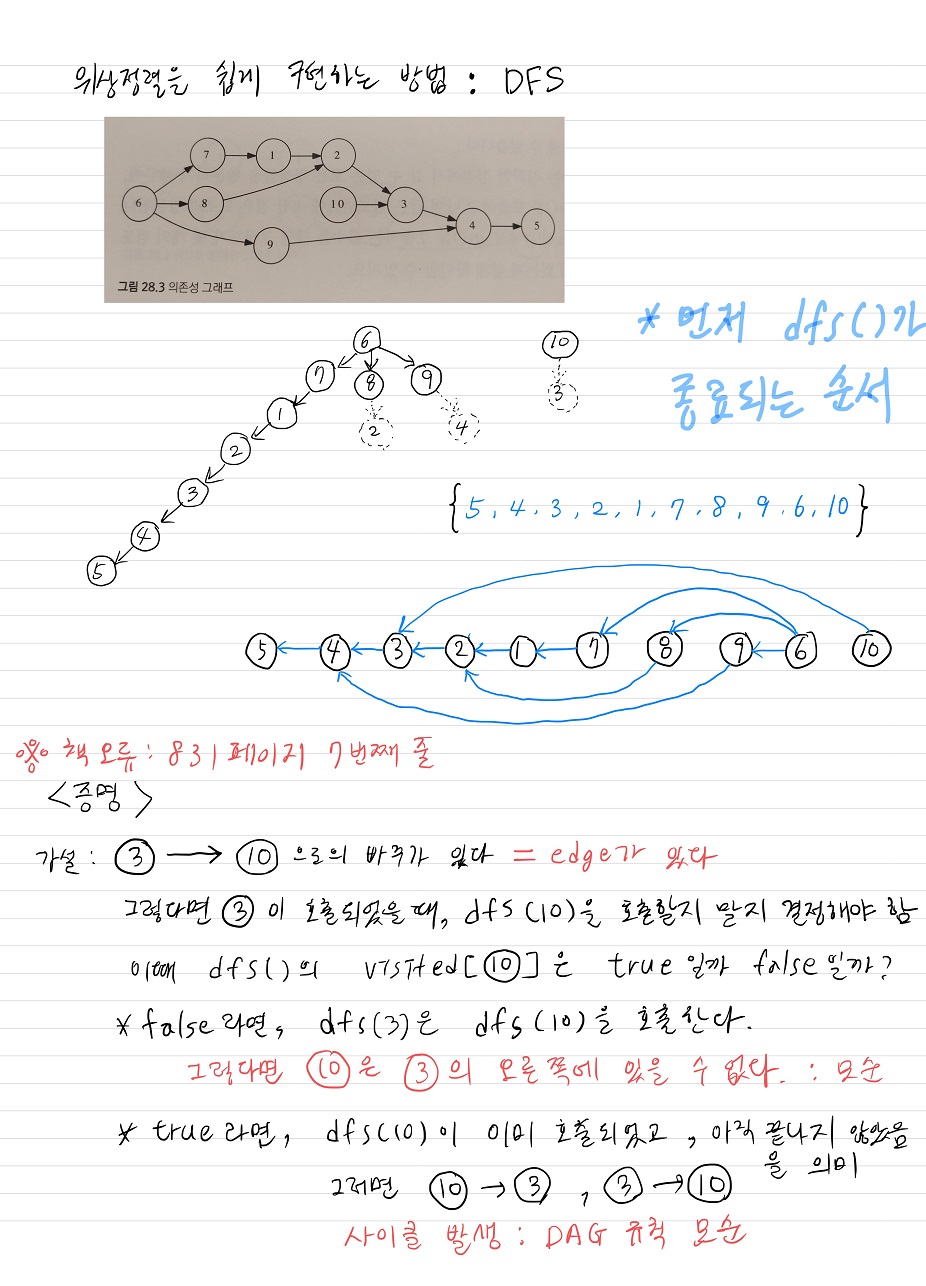 위상정렬을 쉽게 구현하는 방법 : DFS
7 1 2
6 8 10 3
9 4 5
그림 28.3 의존성 그래프
* 먼저 dfs()가
종료되는 순서
6 10
7 8 9 3
1 2 4
2
3
4
5
{5, 4, 3, 2, 1, 7, 8, 9, 6, 10}
5 4 3 2 1 7 8 9 6 10
※ 책 오류 : 831 페이지 7번째 줄
<증명>
가설 : 3 → 10 으로의 바주가 있다 = edge가 있다
그렇다면 3 이 호출되었을 때, dfs(10)을 호출할지 말지 결정해야 함
이때 dfs()의 visited[10]은 true일까 false일까?
* false라면, dfs(3)은 dfs(10)을 호출한다.
그렇다면 10은 3의 오른쪽에 있을 수 없다. : 모순
* true라면, dfs(10)이 이미 호출되었고, 아직 끝나지 않았음
을 의미
그러면 10 → 3 , 3 → 10
사이클 발생 : DAG 규칙 모순